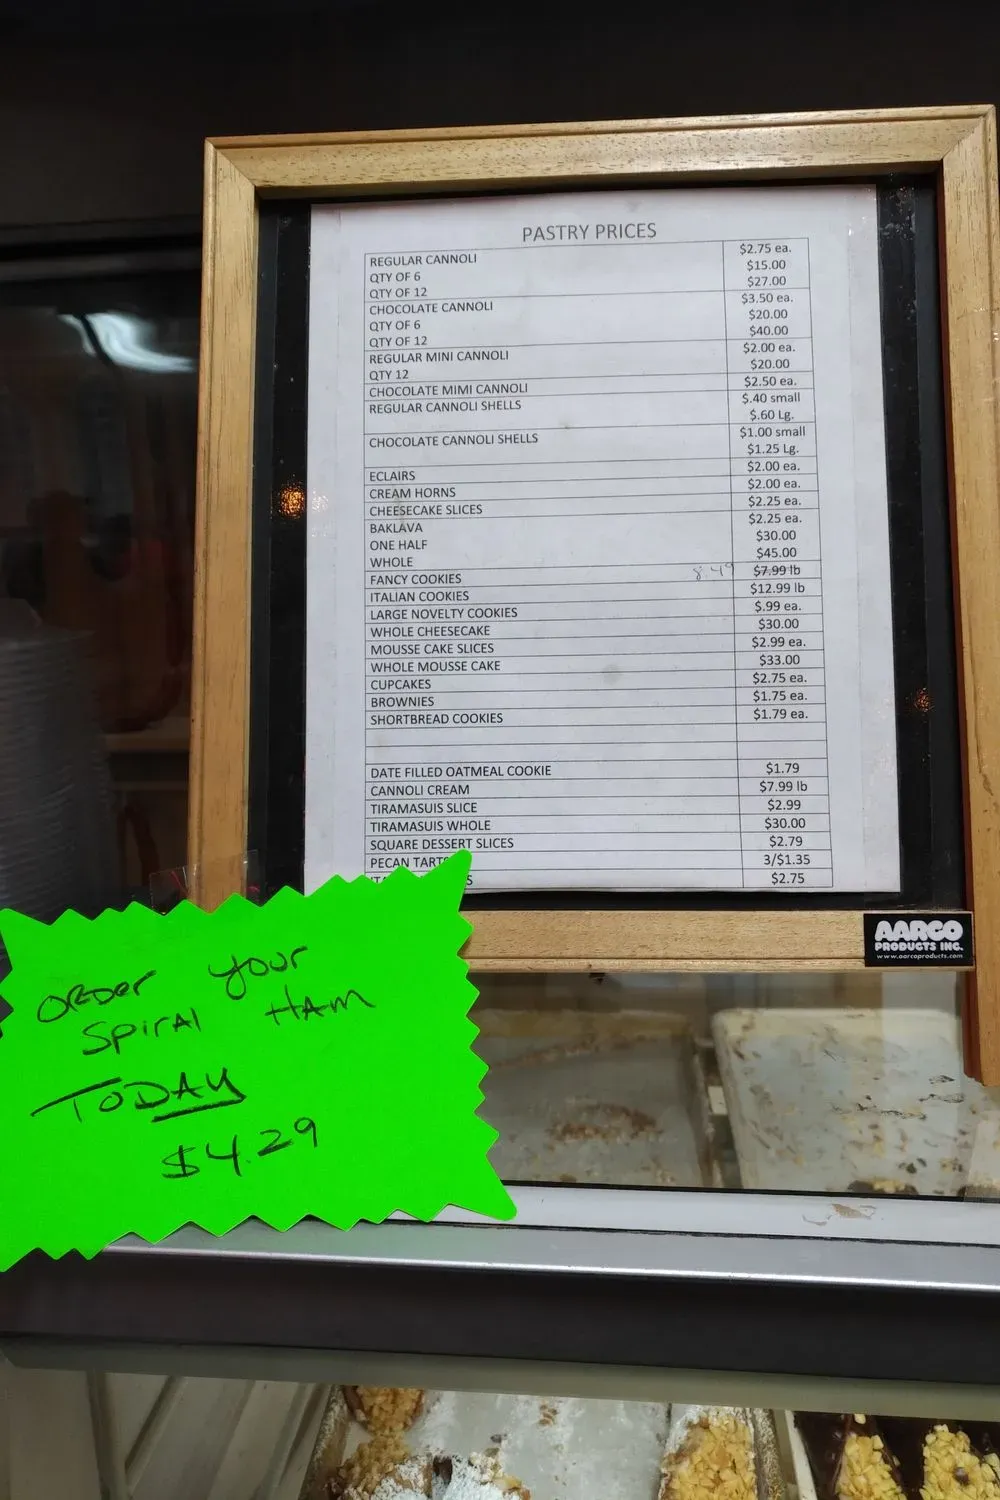 PASTRY PRICES
REGULAR CANNOLI $2.75 ea.
QTY OF 6 $15.00
QTY OF 12 $27.00
CHOCOLATE CANNOLI $3.50 ea.
QTY OF 6 $20.00
QTY OF 12 $40.00
REGULAR MINI CANNOLI $2.00 ea.
QTY 12 $20.00
CHOCOLATE MIMI CANNOLI $2.50 ea.
REGULAR CANNOLI SHELLS $.40 small
$.60 Lg.
CHOCOLATE CANNOLI SHELLS $1.00 small
$1.25 Lg.
ECLAIRS $2.00 ea.
CREAM HORNS $2.00 ea.
CHEESECAKE SLICES $2.25 ea.
BAKLAVA $2.25 ea.
ONE HALF $30.00
WHOLE $45.00
FANCY COOKIES 8.49 $7.99 lb
ITALIAN COOKIES $12.99 lb
LARGE NOVELTY COOKIES $.99 ea.
WHOLE CHEESECAKE $30.00
MOUSSE CAKE SLICES $2.99 ea.
WHOLE MOUSSE CAKE $33.00
CUPCAKES $2.75 ea.
BROWNIES $1.75 ea.
SHORTBREAD COOKIES $1.79 ea.
DATE FILLED OATMEAL COOKIE $1.79
CANNOLI CREAM $7.99 lb
TIRAMASUIS SLICE $2.99
TIRAMASUIS WHOLE $30.00
SQUARE DESSERT SLICES $2.79
PECAN TARTS 3/$1.35
$2.75
AARCO
PRODUCTS INC.
www.aarcoproducts.com
ORDER your
Spiral HAM
TODAY
$4.29